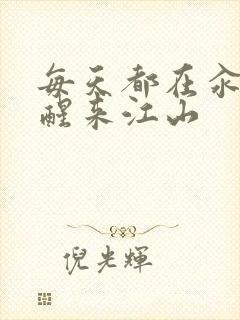 每天都在
醒来江山
倪光輝